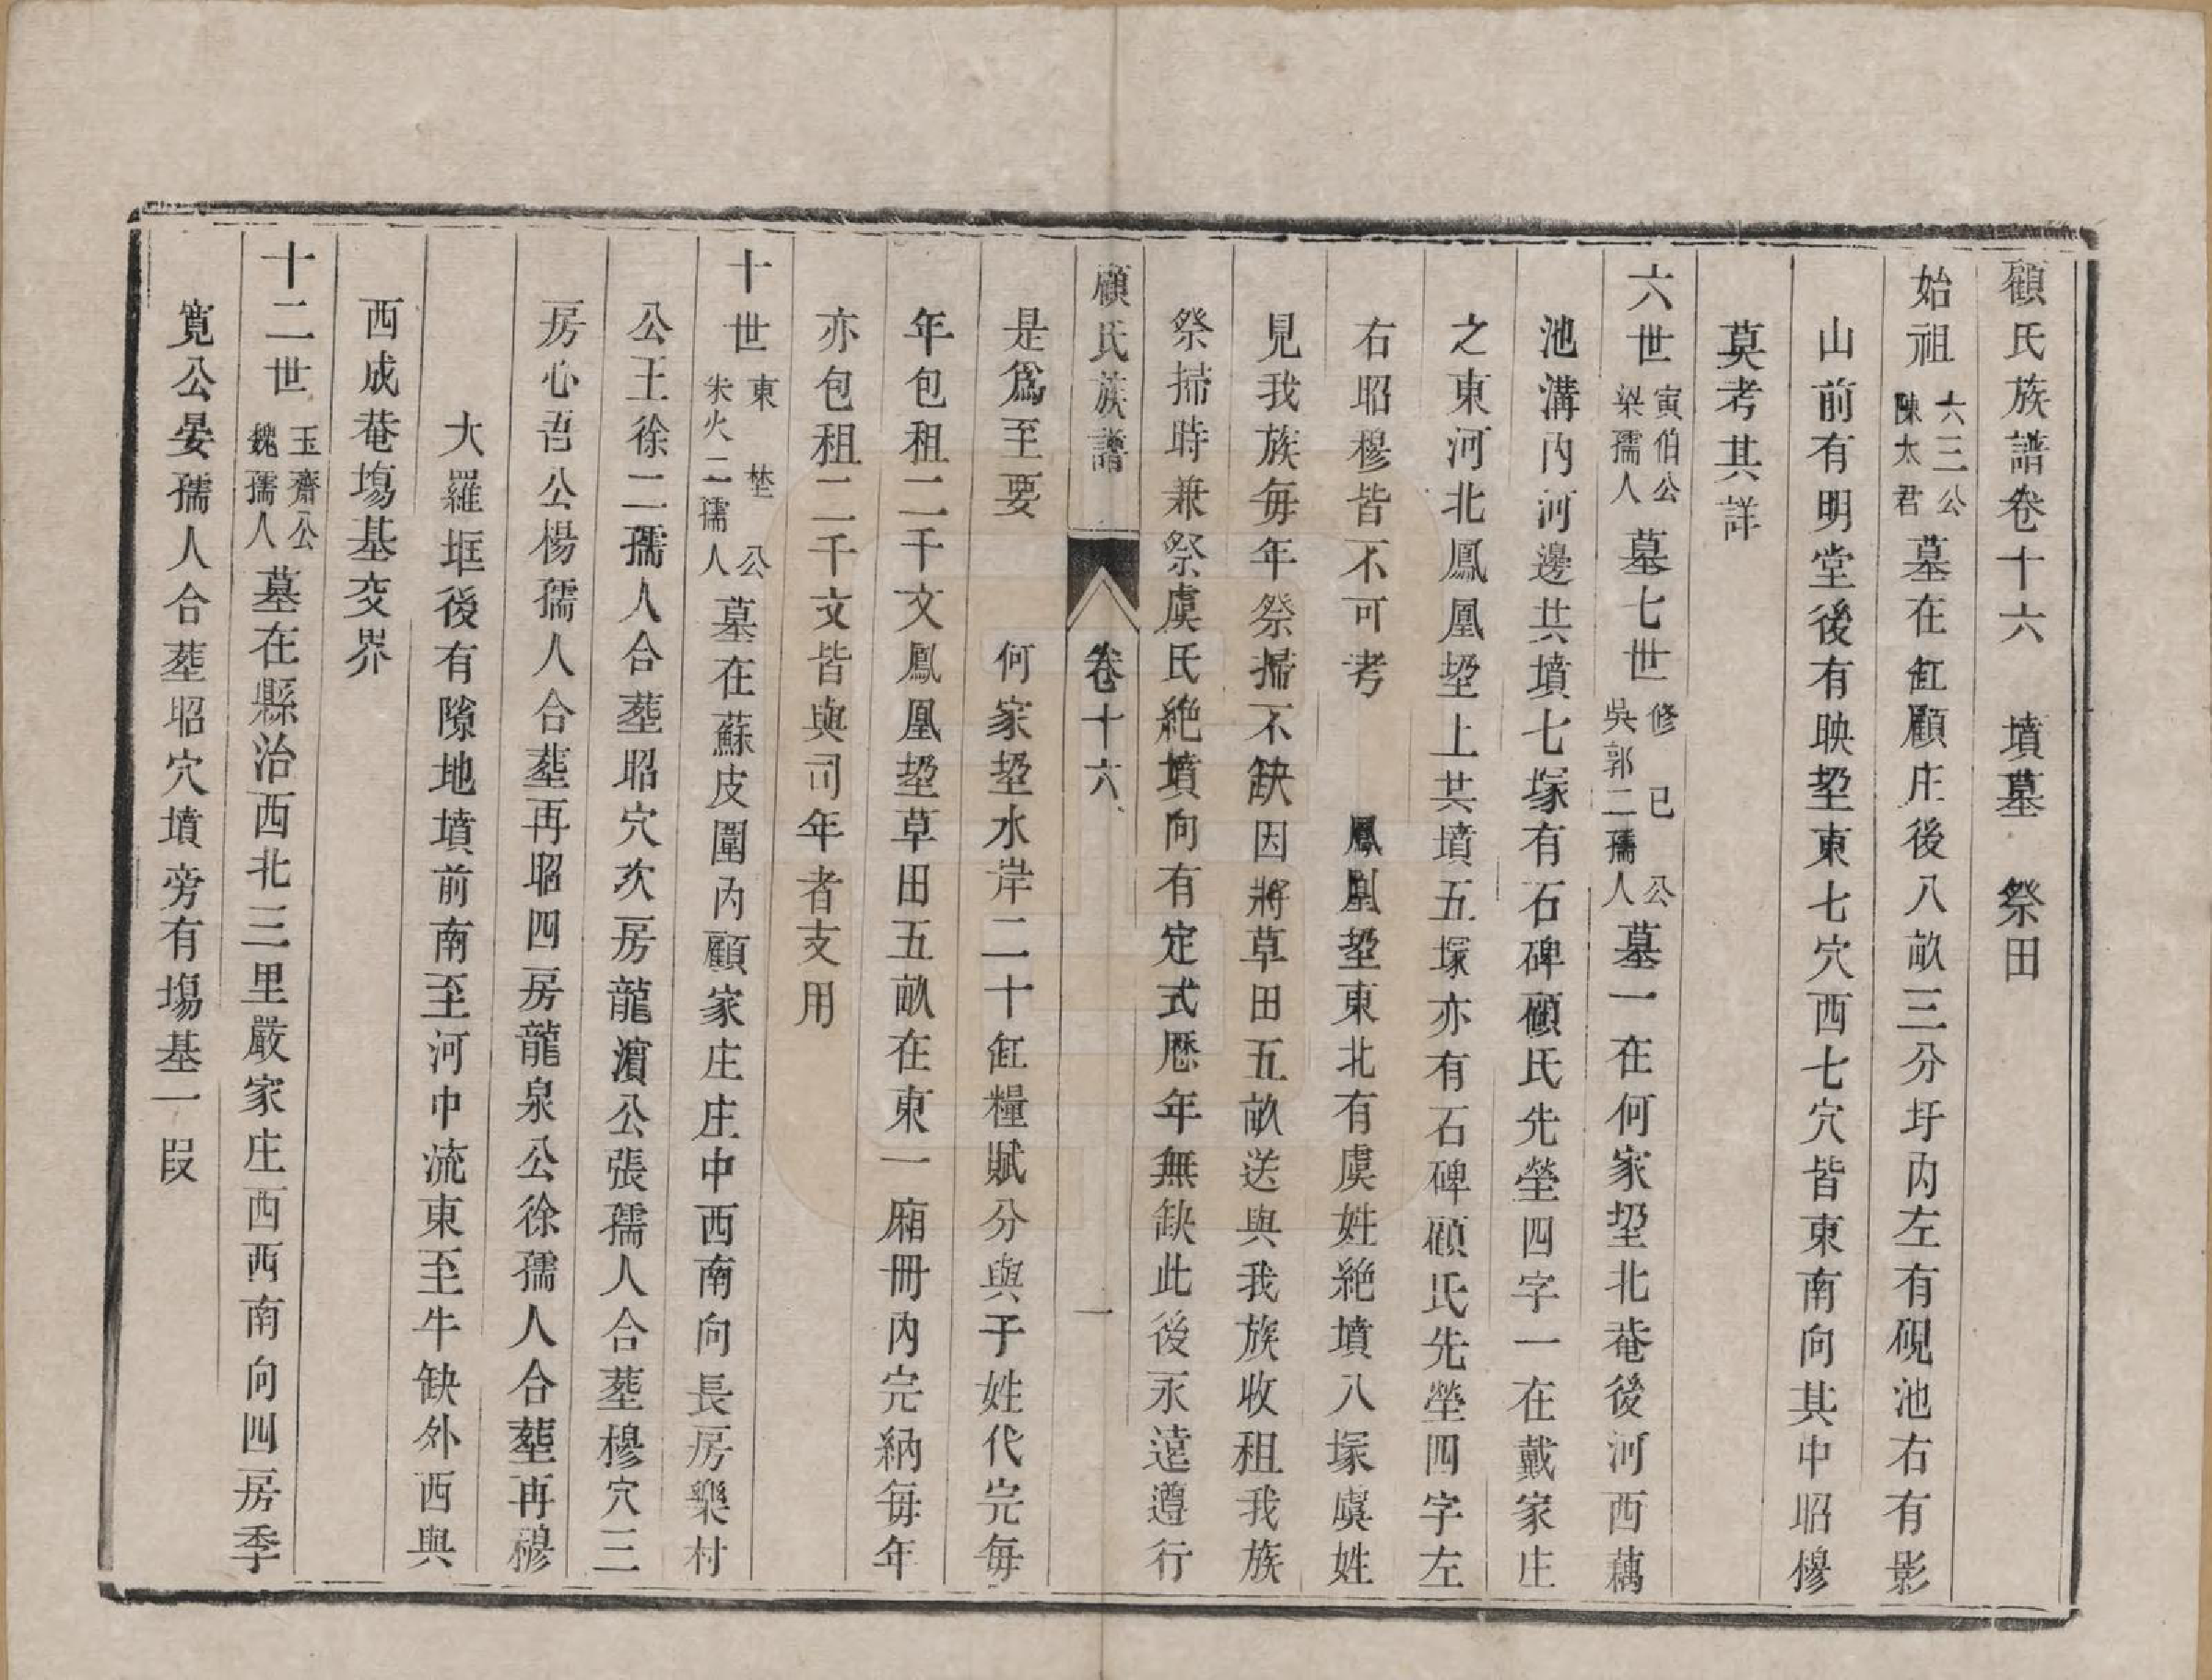 顧氏族譜卷十六　墳墓　祭田
始祖六三公陳太君墓在缸顧庄後八畝三分圩內左有硯池右有影
山前有明堂後有映垩東七穴西七穴皆東南向其中昭穆
莫考其詳
六世寅伯公梁孺人墓七世修己公吳郭二孺人墓一在何家垩北菴後河西藕
池溝內河邊共墳七塚有石碑顧氏先塋四字一在戴家庄
之東河北鳳凰垩上共墳五塚亦有石碑顧氏先塋四字左
右昭穆皆不可考　鳳凰垩東北有虞姓絶墳八塚虞姓
見我族每年祭掃不缺因將草田五畝送與我族收租我族
祭掃時兼祭虞氏絶墳向有定式歷年無缺此後永遠遵行
顧氏族譜　卷十六　一
是爲至要　何家垩水岸二十缸糧賦分與于姓代完每
年包租二千文鳳凰垩草田五畝在東一廂冊內完納每年
亦包租二千文皆與司年者支用
十世東埜公朱火二孺人墓在蘇皮圍內顧家庄庄中西南向長房樂村
公王徐二孺人合塟昭穴次房龍濵公張孺人合塟穆穴三
房心吾公楊孺人合塟再昭四房龍泉公徐孺人合塟再穆
大羅垇後有隙地墳前南至河中流東至牛缺外西與
西成菴塲基交界
十二世玉齋公魏孺人墓在縣治西北三里嚴家庄西西南向四房季
寬公晏孺人合塟昭穴墳旁有塲基一叚